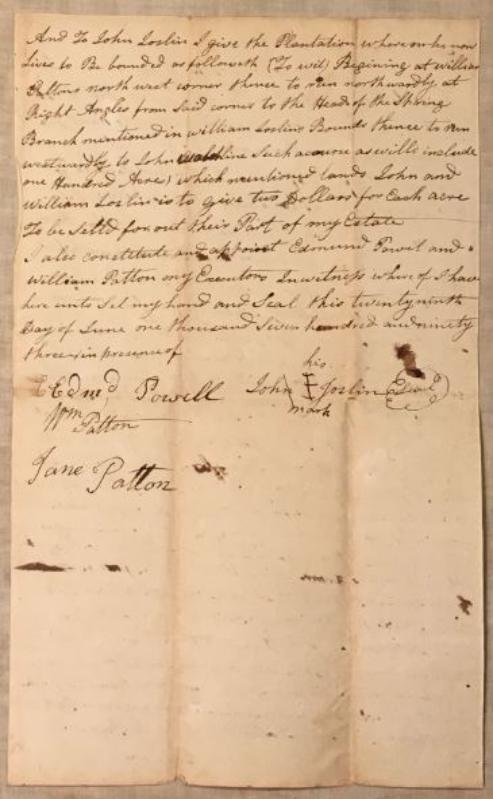 And To John Joslin I give the Plantation whereon he now
Lives to Be bounded as followeth (To wit) Begining at William
Pattons north west corner thence to run northwardly at
Right Angles from Said corner to the Head of the Spring
Branch mentioned in william Joslins Bounds thence to run
westwardly to John line Such a course as will include
one Hundred Acres) which mentioned lands John and
William Joslin is to give two Dollars for Each acre
To be Setled for out their Part of my Estate
I also constitute and appoint Edmund Powel and
William Patton my Executors In witness where of I have
here unto Set my hand and Seal this twenty ninth
Day of June one thousand Seven hundred and ninety
three in presence of
his
Edmd Powell John I Joslin Seal
mark
Wm Patton
Jane Patton